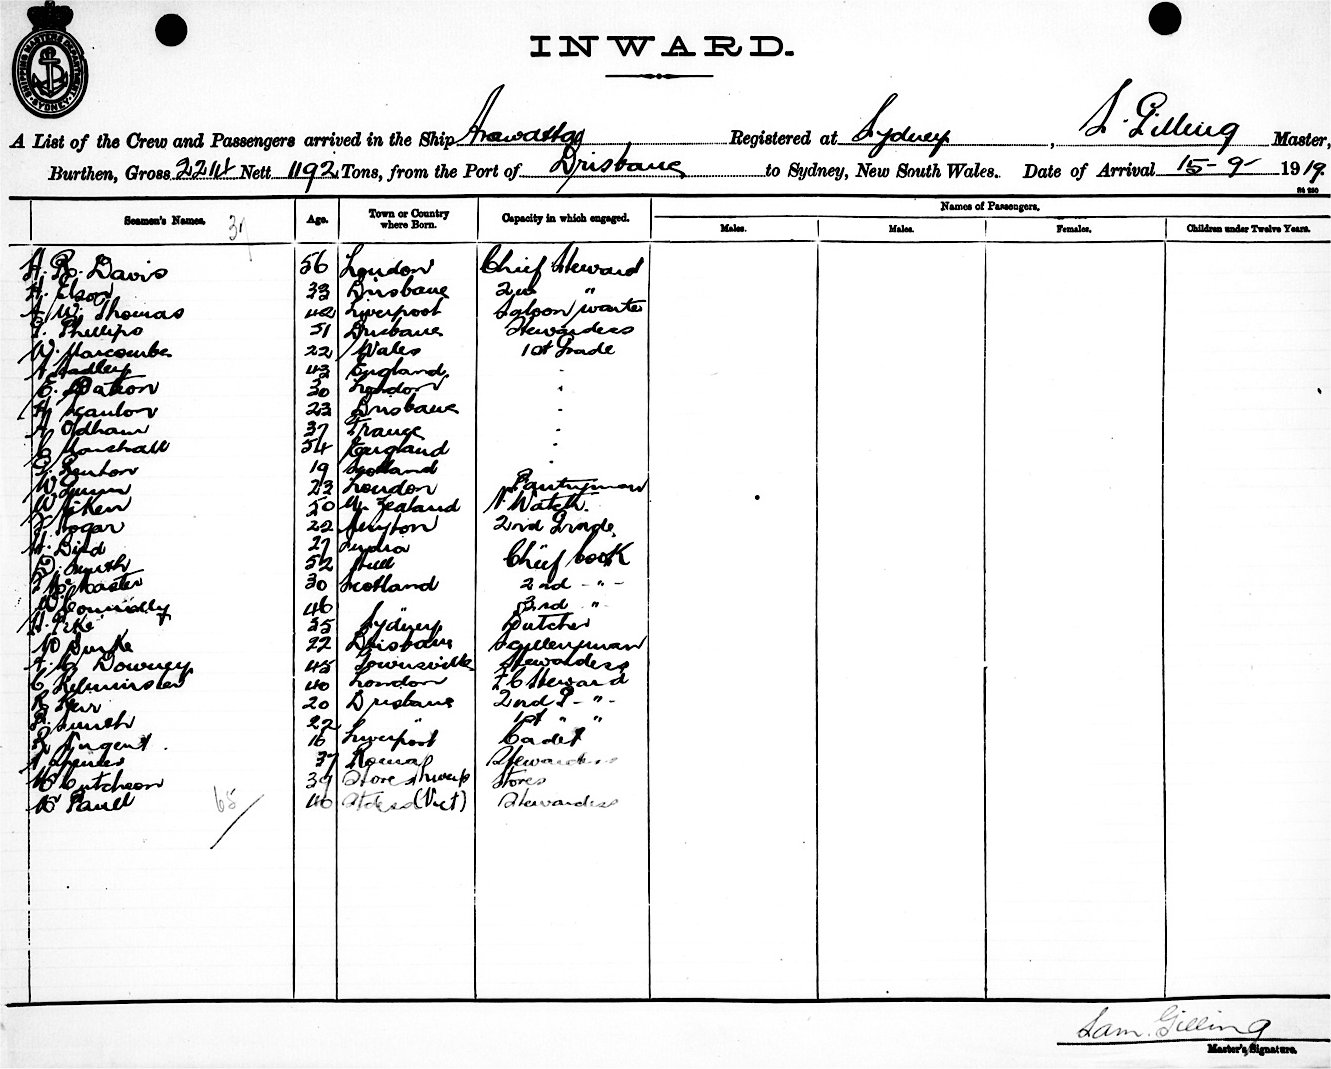 SHIPPING MASTERS DEPARTMENT SYDNEY
INWARD.
A List of the Crew and Passengers arrived in the Ship Arawatta Registered at Sydney, S. Gilling Master,
Burthen, Gross 2214 Nett 1192 Tons, from the Port of Brisbane to Sydney, New South Wales. Date of Arrival 15-9- 1919.
Seamen's Names. Age. Town or Country where Born. Capacity in which engaged. Names of Passengers.
Males. Males. Females. Children under Twelve Years.
A. R. Davis 56 London Chief Steward
33 Brisbane 2nd "
A. W. Thomas 42 Liverpool Saloon waiter
Phillips 51 Brisbane Stewardess
W. Harcombe 22 Wales 1st Grade
A Hadley 43 England
E. Batson 30 London
H Scanlon 23 Brisbane
A Oldham 37 France
C Marshall 54 England
G. Renton 19 Scotland
W Quinn 23 London Pantryman
W Aiken 50 Nw Zealand N. Watch
Hogar 22 2nd Grade
H. Bird 27 India
D. Smith 52 Hull Chief Cook
McMaster 30 Scotland 2nd - " -
W Connolly 46 3rd "
H. 35 Sydney Butcher
W Burke 22 Brisbane Sculleryman
A. M Downey 45 Townsville Stewardess
C Kelminster 40 London F C Steward
R Kerr 20 Brisbane 2nd P - " -
22 " 1st " "
R Nugent 16 Liverpool Cadet
37 Roma Stewardess
M Cutcheon 39 Stores
40 (Vict) Stewardess
65
Sam. Gilling
Master's Signature.